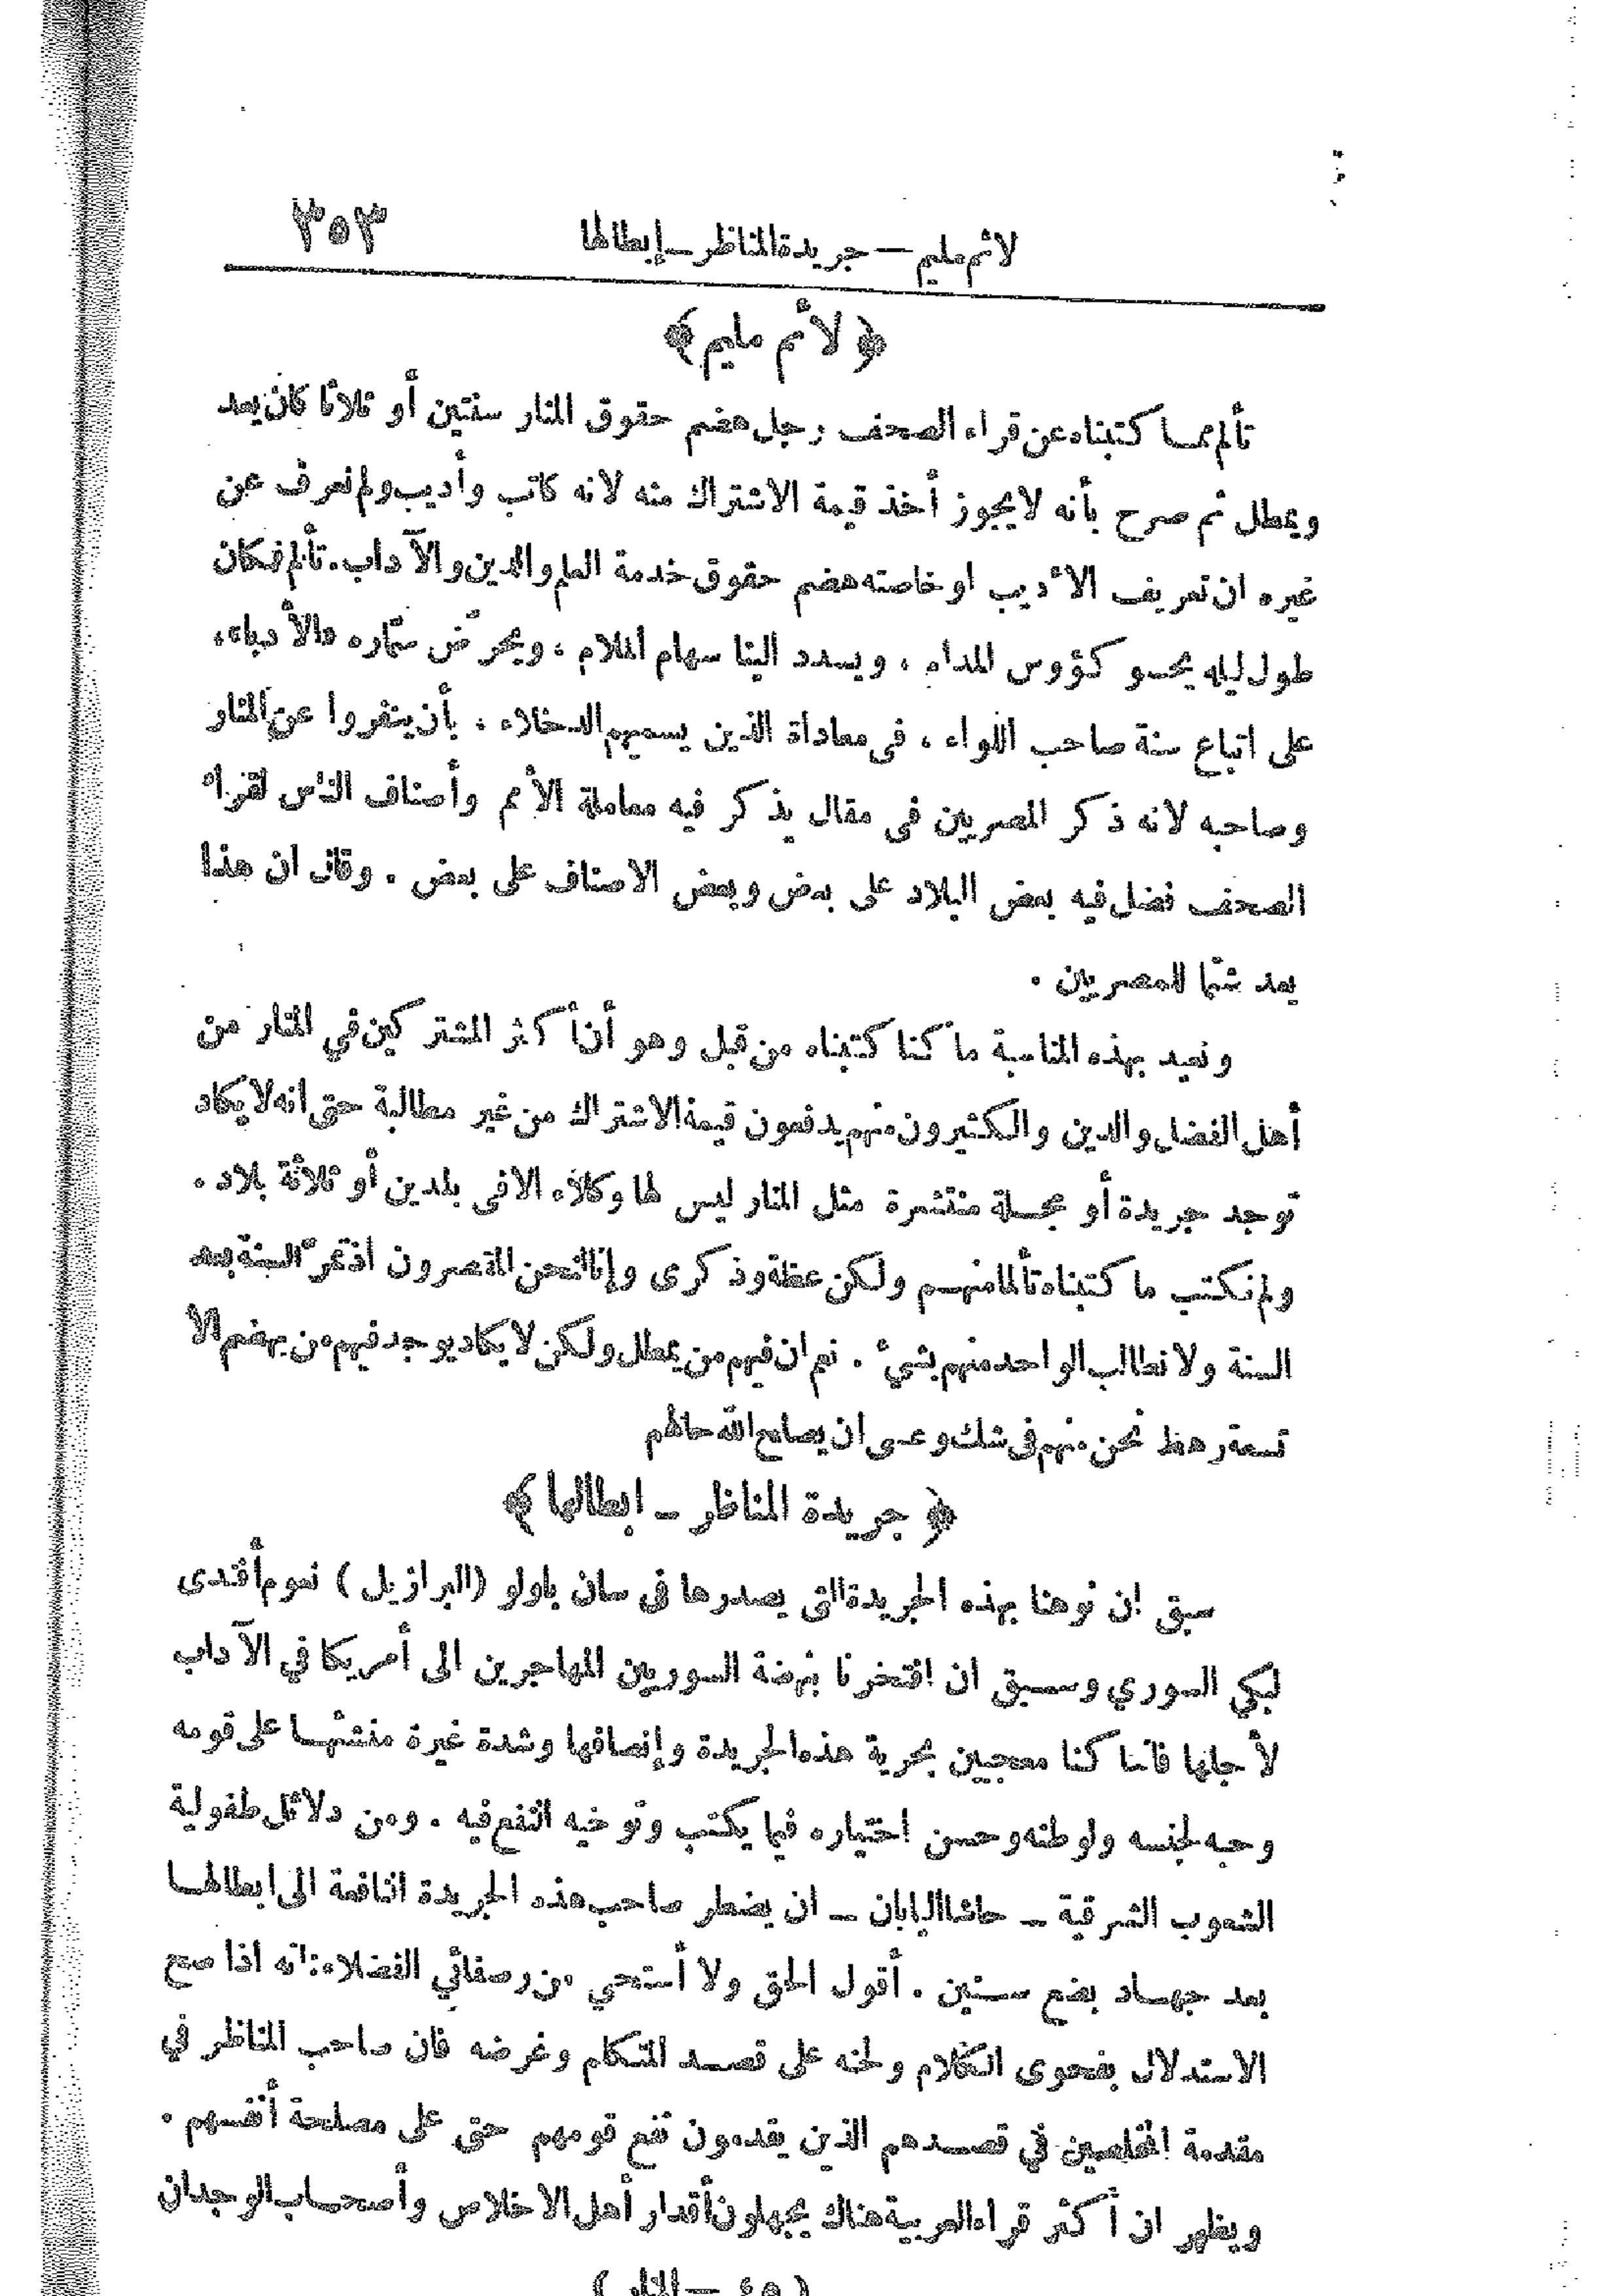 لائم مليم — جريدة المناظر ـ إبطالها ٣٥٣
﴿ لائم مليم ﴾
تألم مما كتبناه عن قراء الصحف رجل هضم حقوق المنار سنتين أو ثلاثا كان يعد
ويمطل ثم صرح بأنه لا يجوز أخذ قيمة الاشتراك منه لانه كاتب وأديب ولم نعرف عن
غيره ان تعريف الاديب او خاصته هضم حقوق خدمة العلم والدين والآداب. تألم فكان
طول ليله يحسو كؤوس المدام ، ويسدد الينا سهام الملام ، ويحرّض سمّاره «الأدباء»،
على اتباع سنة صاحب اللواء ، فى معاداة الذين يسميهم الدخلاء ، بأن ينفروا عن المنار
وصاحبه لانه ذكر المصريين فى مقال يذكر فيه معاملة الأمم وأصناف الناس لقراء
الصحف فضل فيه بعض البلاد على بعض وبعض الاصناف على بعض . وقال ان هذا
يعد شتما للمصريين .
ونعيد بهذه المناسبة ما كنا كتبناه من قبل وهو أن أكثر المشتركين في المنار من
أهل الفضل والدين والكثيرون منهم يدفعون قيمة الاشتراك من غير مطالبة حتى انه لا يكاد
توجد جريدة أو مجلة منتشرة مثل المنار ليس لها وكلاء الا فى بلدين أو ثلاثة بلاد .
ولم نكتب ما كتبناه تألما منهم ولكن عظة وذكرى وإننا لنحن المقصرون اذ تمرّ السنة بعد
السنة ولا نطالب الواحد منهم بشيء . نعم ان فيهم من يمطل ولكن لا يكاد يوجد فيهم من يهضم الا
تسعة رهط نحن منهم فى شك وعسى ان يصلح الله حالهم
﴿ جريدة المناظر ـ ابطالها ﴾
سبق ان نوهنا بهذه الجريدة التى يصدرها فى سان باولو (البرازيل) نعوم أفندى
لبكي السوري وسبق ان افتخرنا بنهضة السوريين المهاجرين الى أمريكا في الآداب
لأجلها فاننا كنا معجبين بحرية هذه الجريدة وإنصافها وشدة غيرة منشئها على قومه
وحبه لجنسه ولوطنه وحسن اختياره فيما يكتب وتوخيه النفع فيه . ومن دلائل طفولية
الشعوب الشرقية ـ حاشا اليابان ـ ان يضطر صاحب هذه الجريدة النافعة الى ابطالها
بعد جهاد بضع سنين . أقول الحق ولا أستحي من رصفائي الفضلاء: انه اذا صح
الاستدلال بفحوى الكلام ولحنه على قصد المتكلم وغرضه فان صاحب المناظر في
مقدمة المخلصين في قصدهم الذين يقدمون نفع قومهم حتى على مصلحة أنفسهم .
ويظهر ان أكثر قراء العربية هناك يجهلون أقدار أهل الاخلاص وأصحاب الوجدان
(٤٥ — المنار)